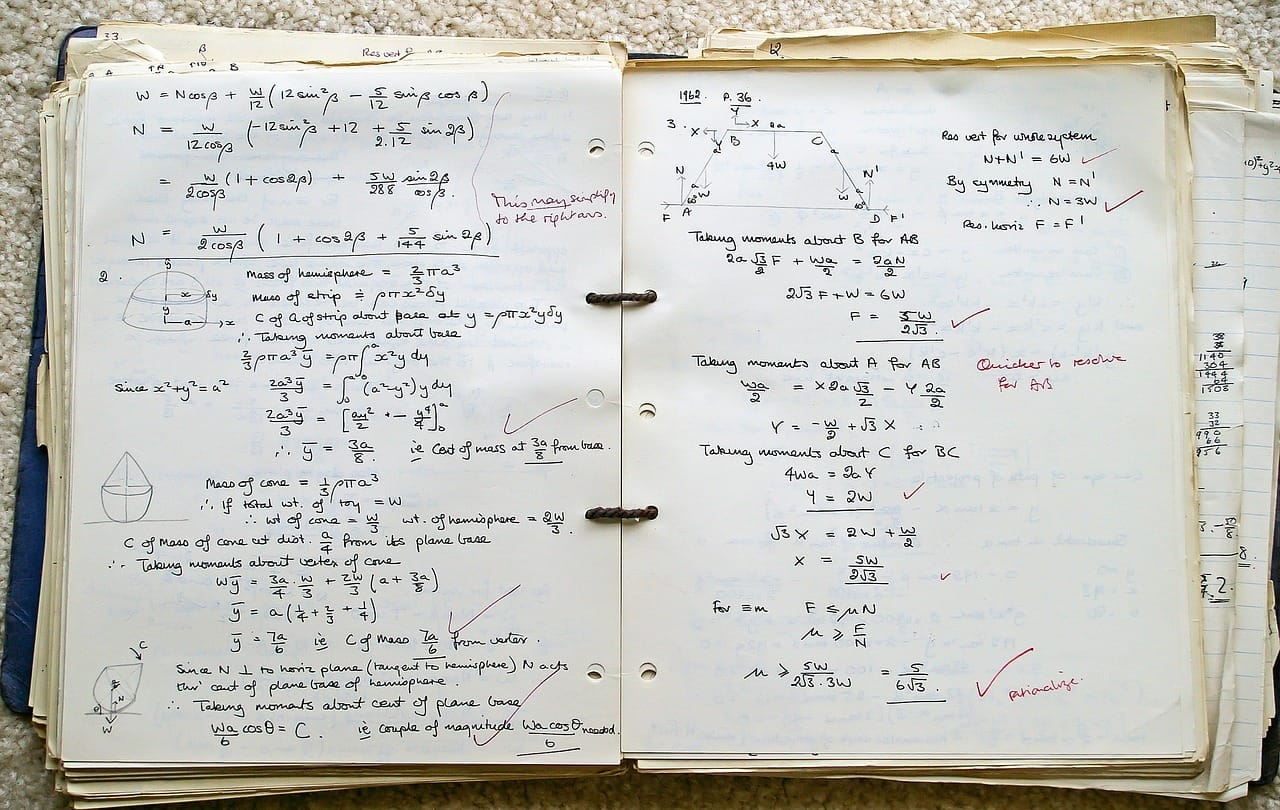 33.
β
Res vert
A
B
W = Ncosβ + W/12 (12sin²β − 5/12 sinβ cosβ)
N = W/12cosβ (−12sin²β + 12 + 5/2.12 sin2β)
= W/2cosβ (1 + cos2β) + 5W/288 sin2β/cosβ.
This may simplify
to the right ans.
N = W/2cosβ (1 + cos2β + 5/144 sin2β)
2.
y
x
δy
y
a
x
Mass of hemisphere = 2/3 πa³
Mass of strip ≡ ρπx²δy
C of G of strip about base at y = ρπx²yδy
∴ Taking moments about base
2/3 ρπa³ȳ = ρπ∫₀ᵃ x²y dy
since x²+y²=a² 2a³ȳ/3 = ∫₀ᵃ (a²−y²) y dy
2a³ȳ/3 = [ay²/2 + − y⁴/4]₀ᵃ
∴ ȳ = 3a/8. ie Cent of mass at 3a/8 from base.
Mass of cone = 1/3 ρπa³
∴ If total wt. of toy = W
∴ wt of cone = W/3 wt. of hemisphere = 2W/3.
C of Mass of cone at dist. a/4 from its plane base
∴ Taking moments about vertex of cone
Wȳ = 3a/4 . W/3 + 2W/3 (a + 3a/8)
ȳ = a(1/4 + 2/3 + 1/4)
ȳ = 7a/6 ie C of Mass 7a/6 from vertex.
C
N
θ
W
Since N ⊥ to horiz plane (tangent to hemisphere) N acts
thro' cent of plane base of hemisphere.
∴ Taking moments about cent of plane base
Wa/6 cosθ = C. ie couple of magnitude Wa cosθ/6 needed.
12.
1962. P. 36.
3.
Y
X
X
2a
B
C
a
a
4W
N
N'
a
a
W
W
60°
60°
F
A
D
F'
Res vert for whole system
N+N' = 6W
By symmetry N = N'
∴ N = 3W
Res. horiz F = F'
Taking moments about B for AB
2a √3/2 F + Wa/2 = 2aN/2
2√3 F + W = 6W
F = 5W/2√3.
Taking moments about A for AB
Quicker to resolve
for AB
Wa/2 = X 2a √3/2 − Y 2a/2
Y = −W/2 + √3 X
Taking moments about C for BC
4Wa = 2aY
Y = 2W
√3 X = 2W + W/2
X = 5W/2√3
For ≡m F ≤ μN
μ ≥ F/N
μ ≥ 5W/2√3.3W = 5/6√3.
rationalize.
38
38
1140
304
1444
64
1508
33
32
990
66